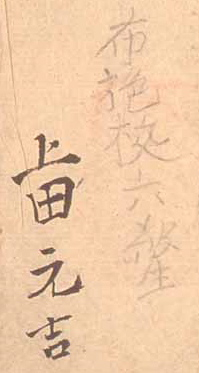 布施校六
上田元吉